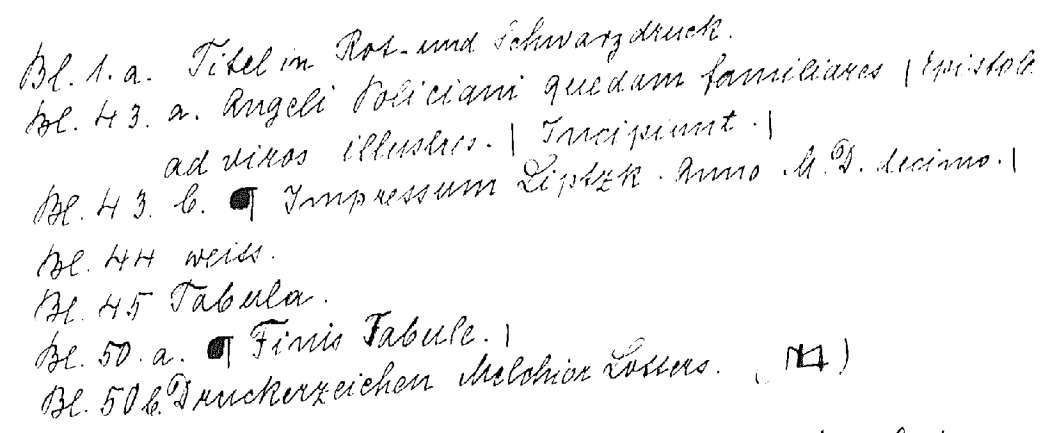 Bl. 1. a. Titel in Rot- und Schwarzdruck.
Bl. 43. a. Angeli Policiani quedam familiares | Epistole
ad viros illustres. | Incipiunt. |
Bl. 43. b. ¶ Impressum Liptzk. Anno. M. D. decimo. |
Bl. 44 weiss.
Bl. 45 Tabula.
Bl. 50. a. ¶ Finis Tabule. |
Bl. 50 b. Druckerzeichen Melchior Lotters. ( )